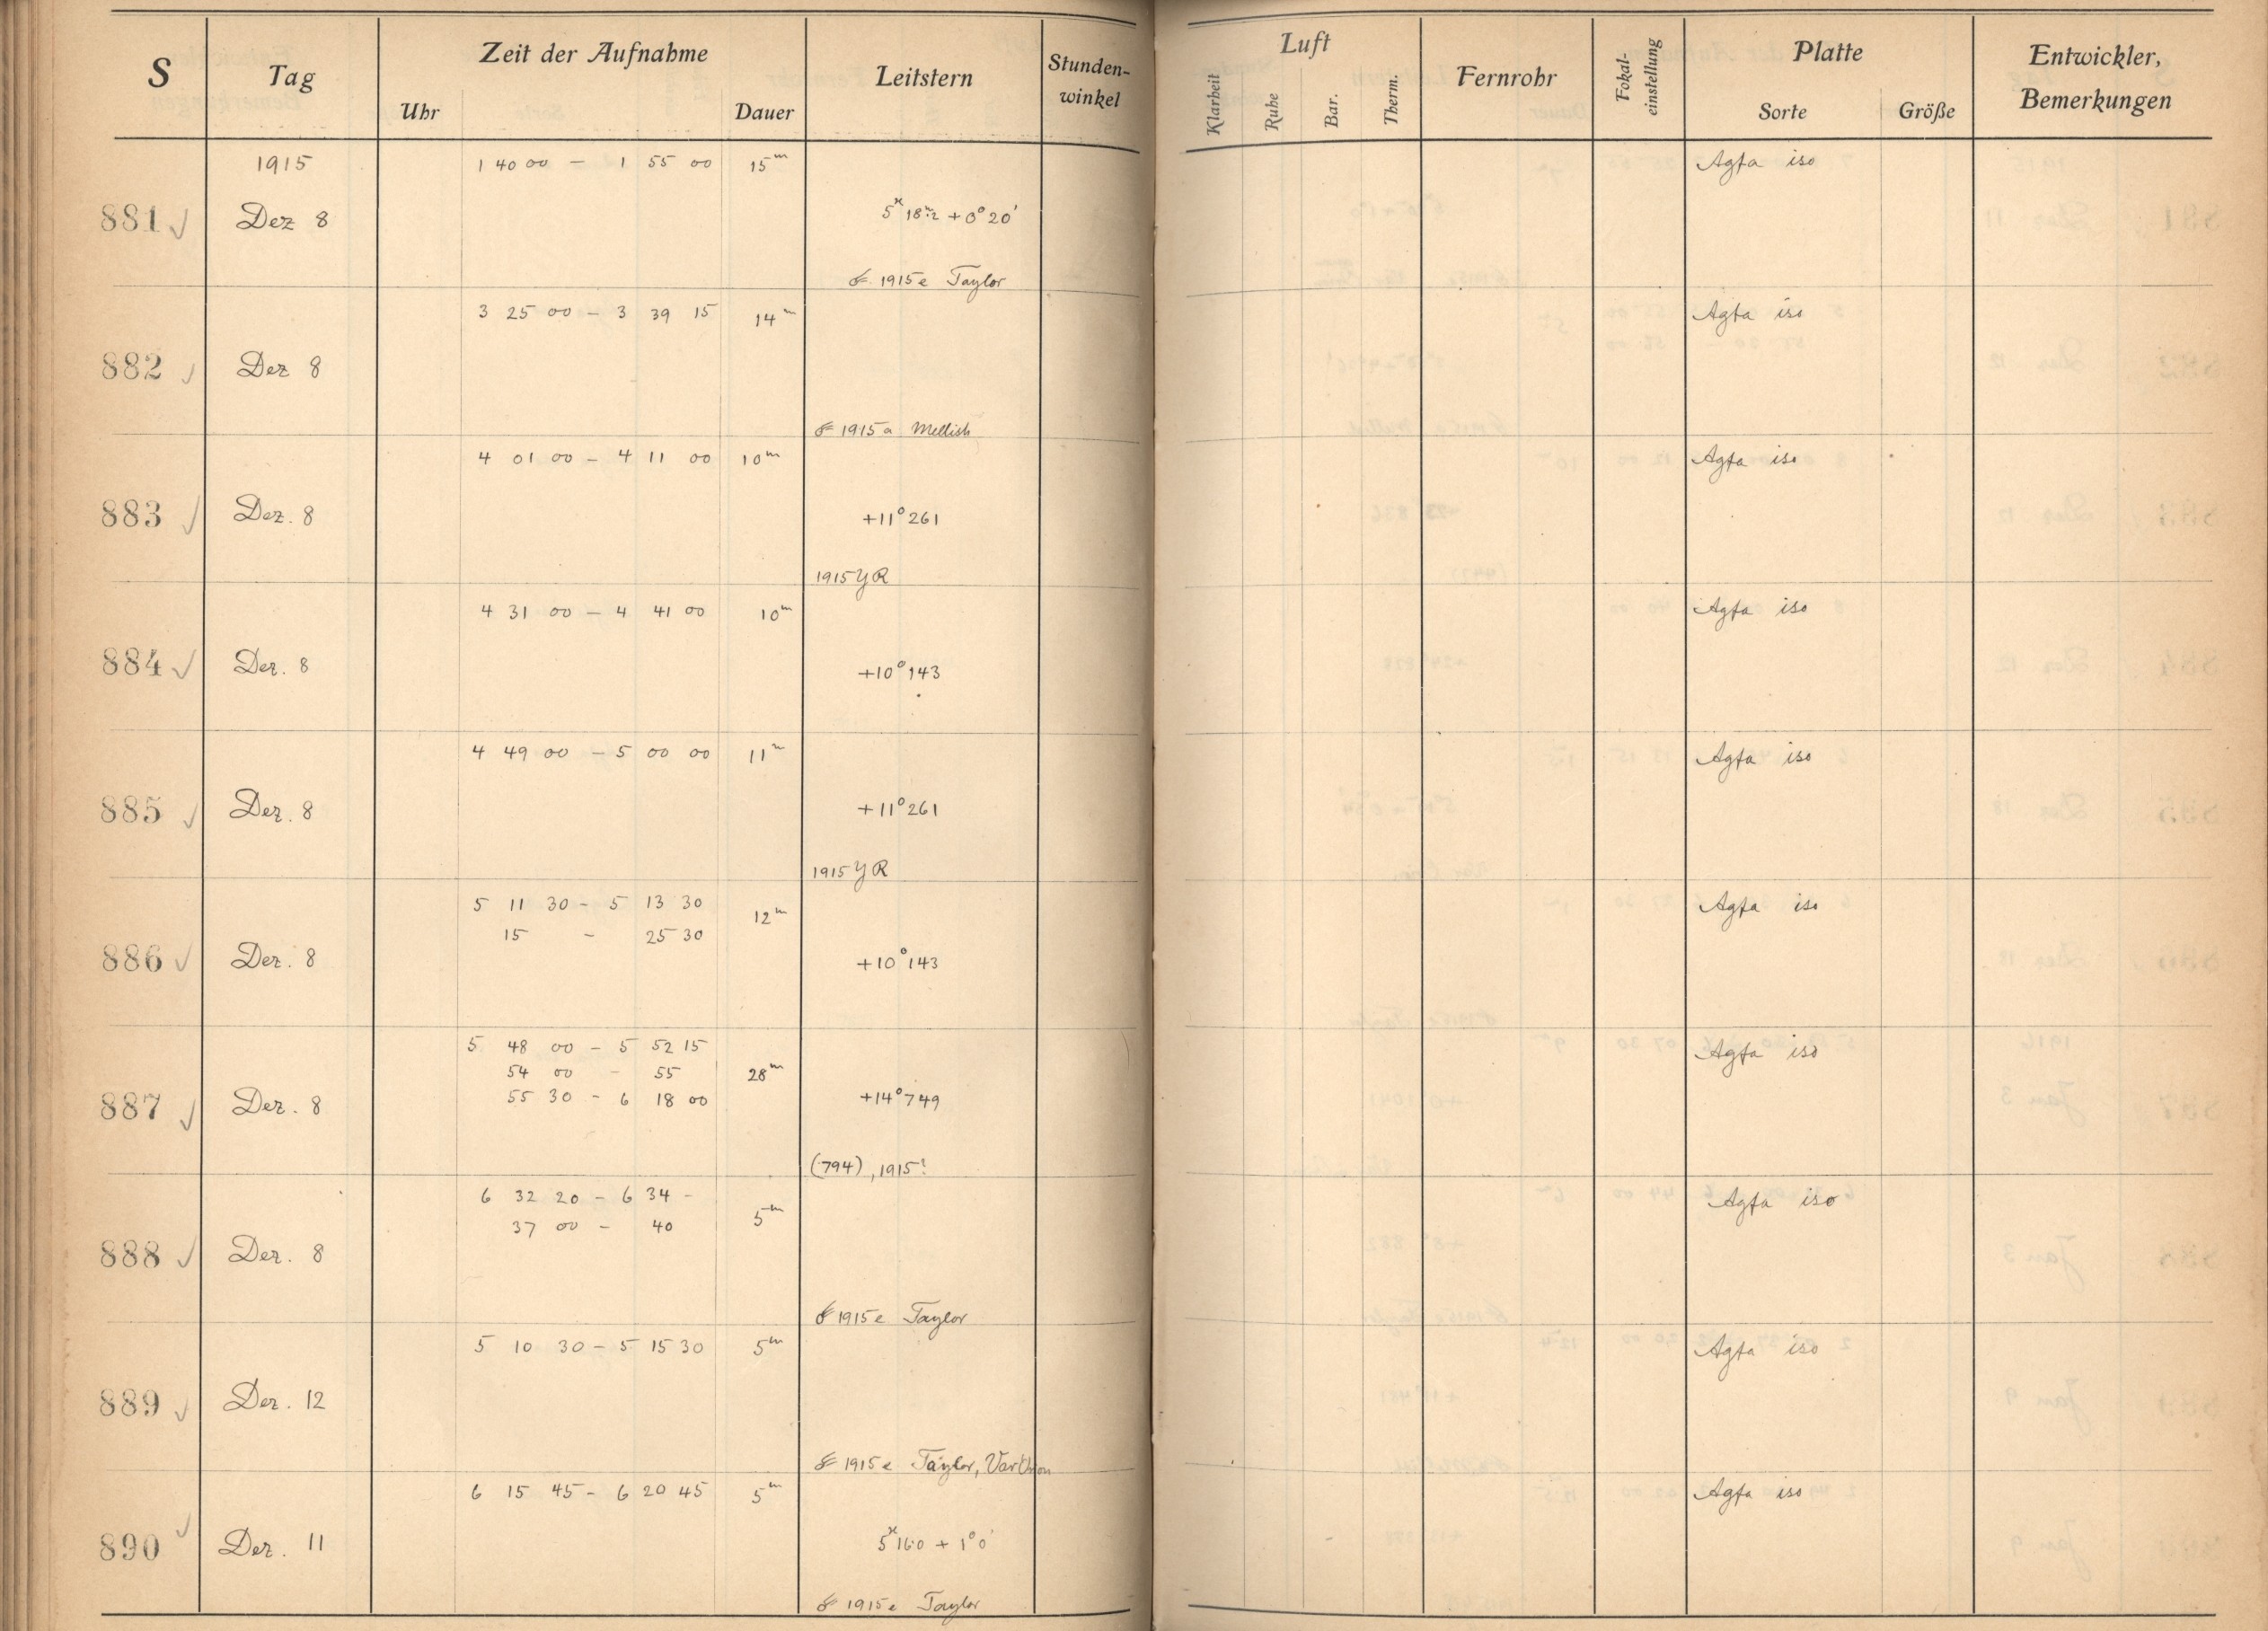 S Tag Zeit der Aufnahme Leitstern Stunden-winkel Luft Fernrohr Fokal-einstellung Platte Entwickler, Bemerkungen
Uhr Dauer Klarheit Ruhe Bar. Therm. Sorte Größe
1915 1 40 00 – 1 55 00 15m Agfa iso
881 Dez 8 5h 18m.2 + 0° 20'
1915e Taylor
3 25 00 – 3 39 15 14m Agfa iso
882 Dez 8
1915a Mellish
4 01 00 – 4 11 00 10m Agfa iso
883 Dez. 8 +11° 261
1915 YR
4 31 00 – 4 41 00 10m Agfa iso
884 Dez. 8 +10° 143
4 49 00 – 5 00 00 11m Agfa iso
885 Dez. 8 +11° 261
1915 YR
5 11 30 – 5 13 30 12m Agfa iso
15 – 25 30
886 Dez. 8 +10° 143
5 48 00 – 5 52 15 Agfa iso
54 00 – 55 28m
55 30 – 6 18 00
887 Dez. 8 +14° 749
(794), 1915?
6 32 20 – 6 34 – 5m Agfa iso
37 00 – 40
888 Dez. 8
1915e Taylor
5 10 30 – 5 15 30 5m Agfa iso
889 Dez. 12
1915e Taylor, Var Orion
6 15 45 – 6 20 45 5m Agfa iso
890 Dez. 11 5h 16.0 + 1° 0'
1915e Taylor